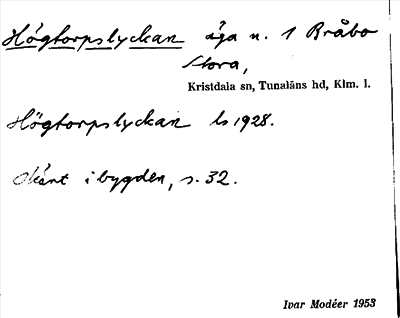 Högtorpslyckan äga n. 1 Bråbo
Stora,
Kristdala sn, Tunaläns hd, Klm. l.
Högtorpslyckan ls 1928.
Känt i bygden, s. 32.
Ivar Modéer 1953